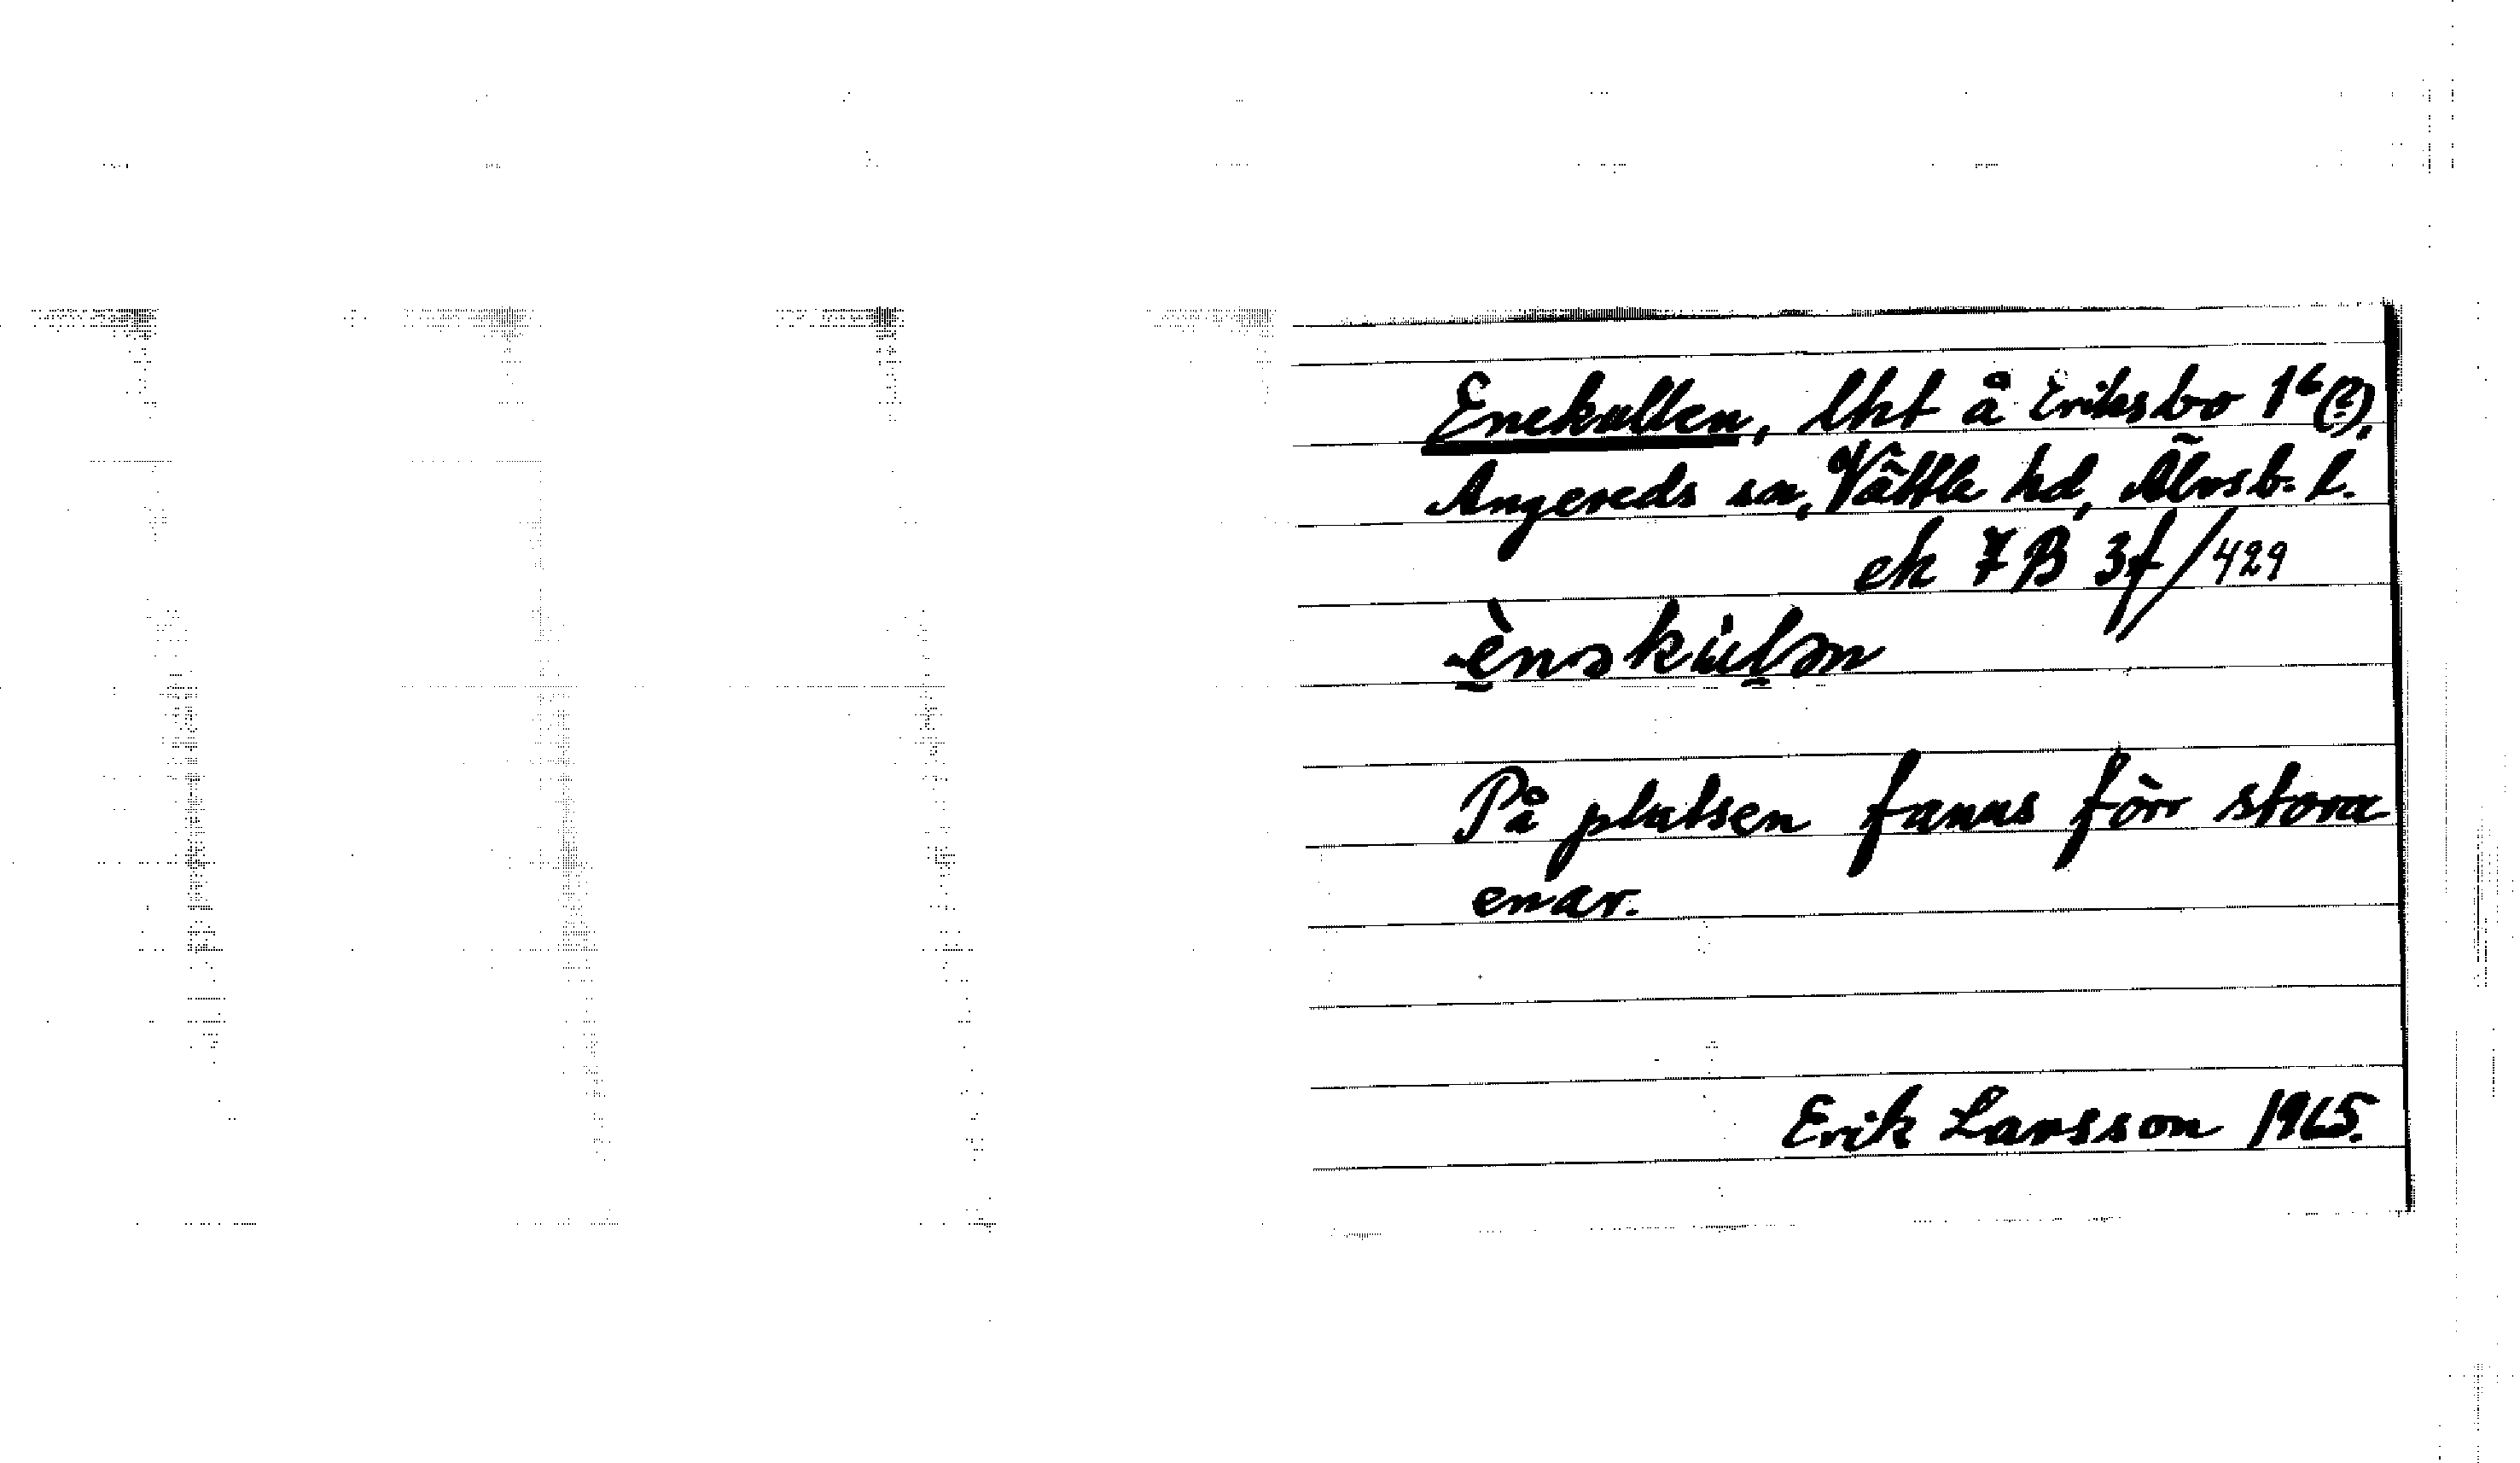 Enekullen, lht å Eriksbo 1⁶ (?),
Angereds sn, Vättle hd, Älvsb. l.
ek 7B 3f/429
ènəkùlən
På platsen fanns förr stora
enar.
Erik Larsson 1965.